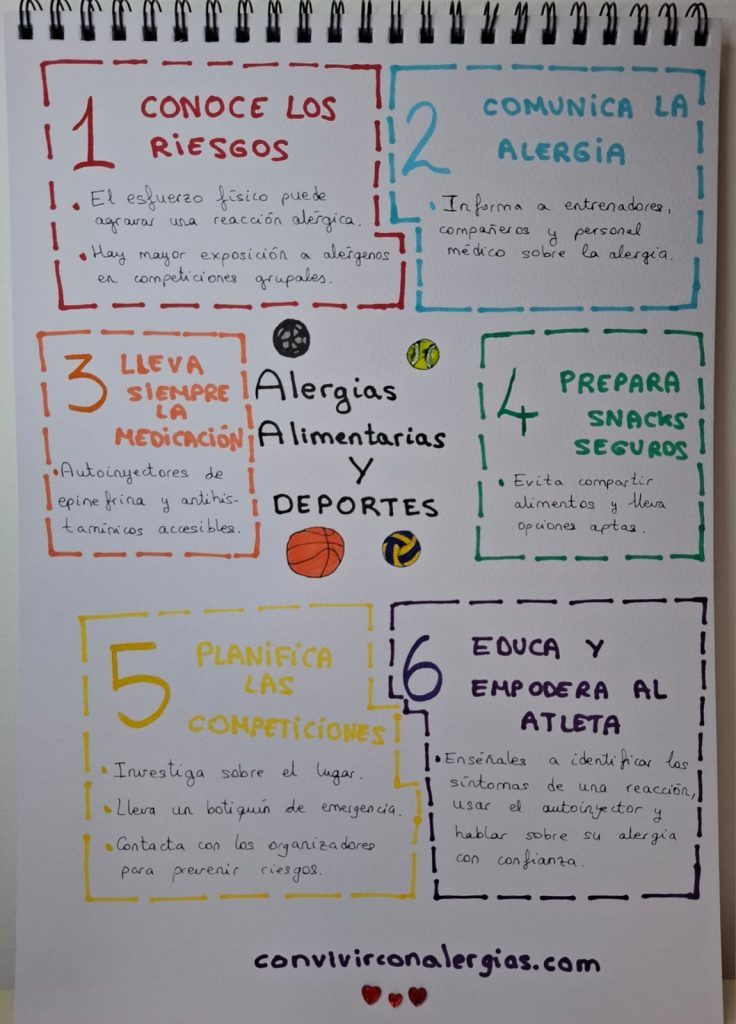 1 CONOCE LOS
RIESGOS
• El esfuerzo físico puede
agravar una reacción alérgica.
• Hay mayor exposición a alérgenos
en competiciones grupales.
2 COMUNICA LA
ALERGIA
• Informa a entrenadores,
compañeros y personal
médico sobre la alergia.
3 LLEVA
SIEMPRE
LA
MEDICACIÓN
• Autoinyectores de
epinefrina y antihis-
tamínicos accesibles.
Alergias
Alimentarias
Y
DEPORTES
4 PREPARA
SNACKS
SEGUROS
• Evita compartir
alimentos y lleva
opciones aptas.
5 PLANIFICA
LAS
COMPETICIONES
• Investiga sobre el lugar.
• Lleva un botiquín de emergencia.
• Contacta con los organizadores
para prevenir riesgos.
6 EDUCA Y
EMPODERA AL
ATLETA
• Enséñales a identificar los
síntomas de una reacción,
usar el autoinyector y
hablar sobre su alergia
con confianza.
convivirconalergias.com